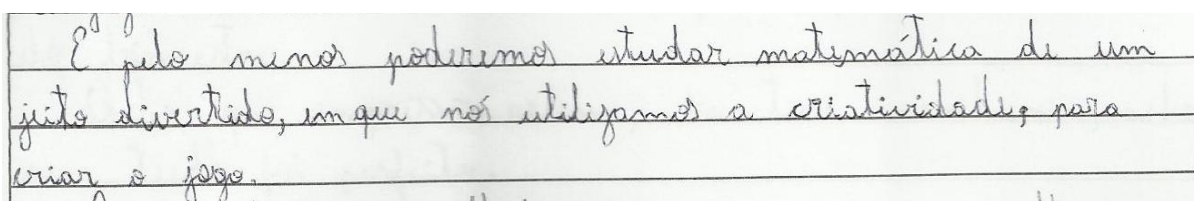 E pelo menos poderemos estudar matemática de um
jeito divertido, em que nós utilizamos a criatividade, para
criar o jogo.